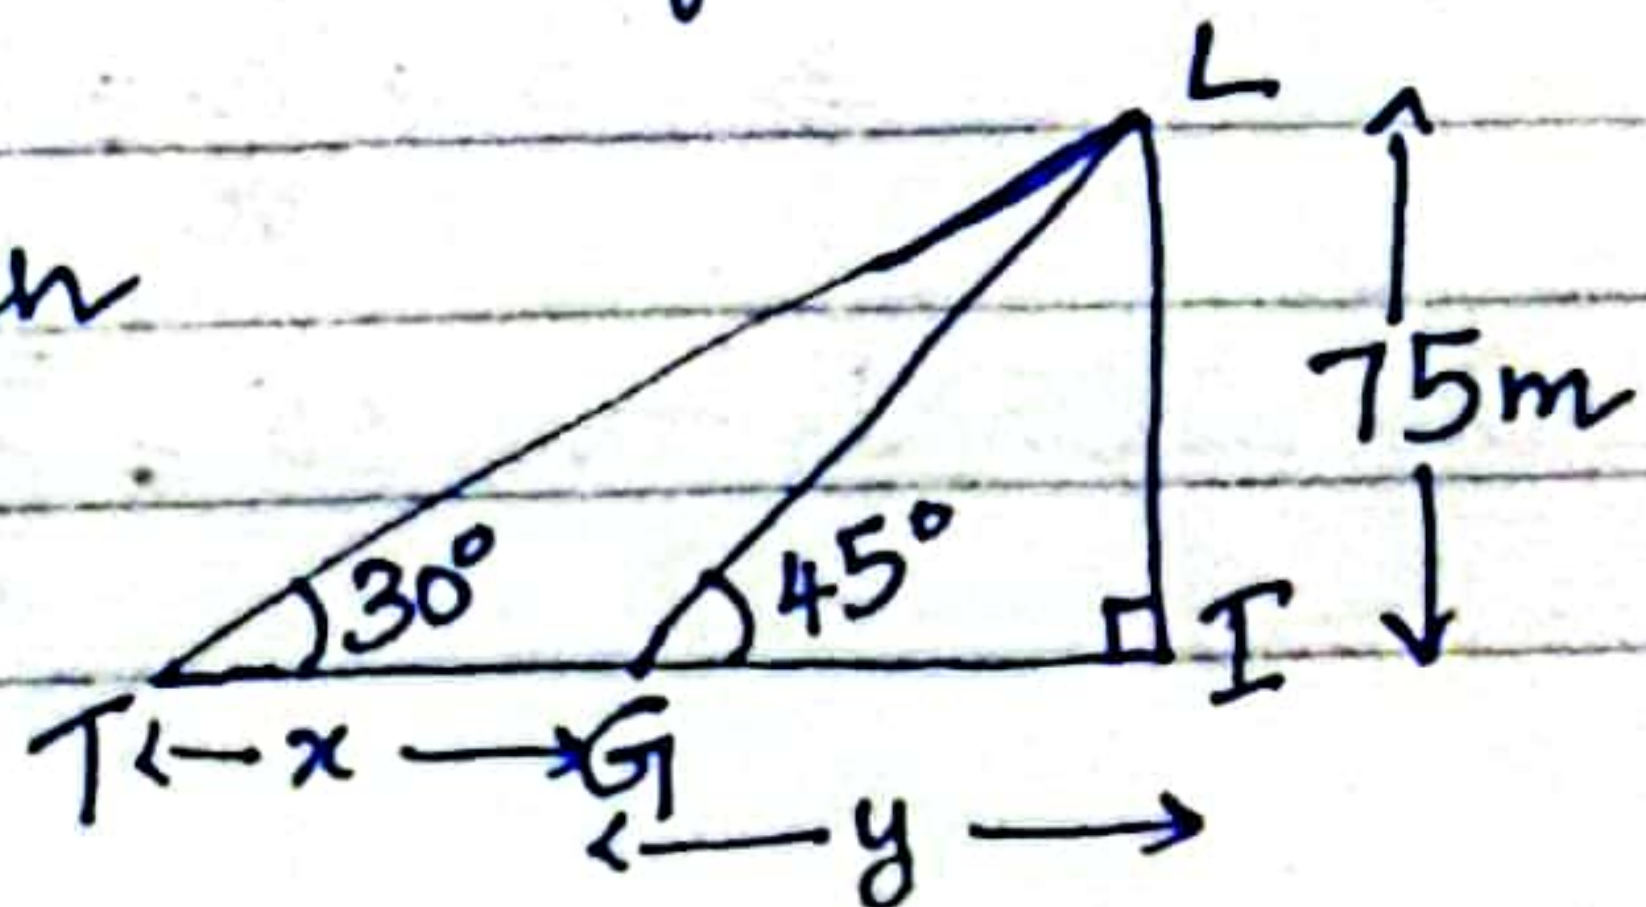 L
n
75m
30°
45°
I
T
x
G
y